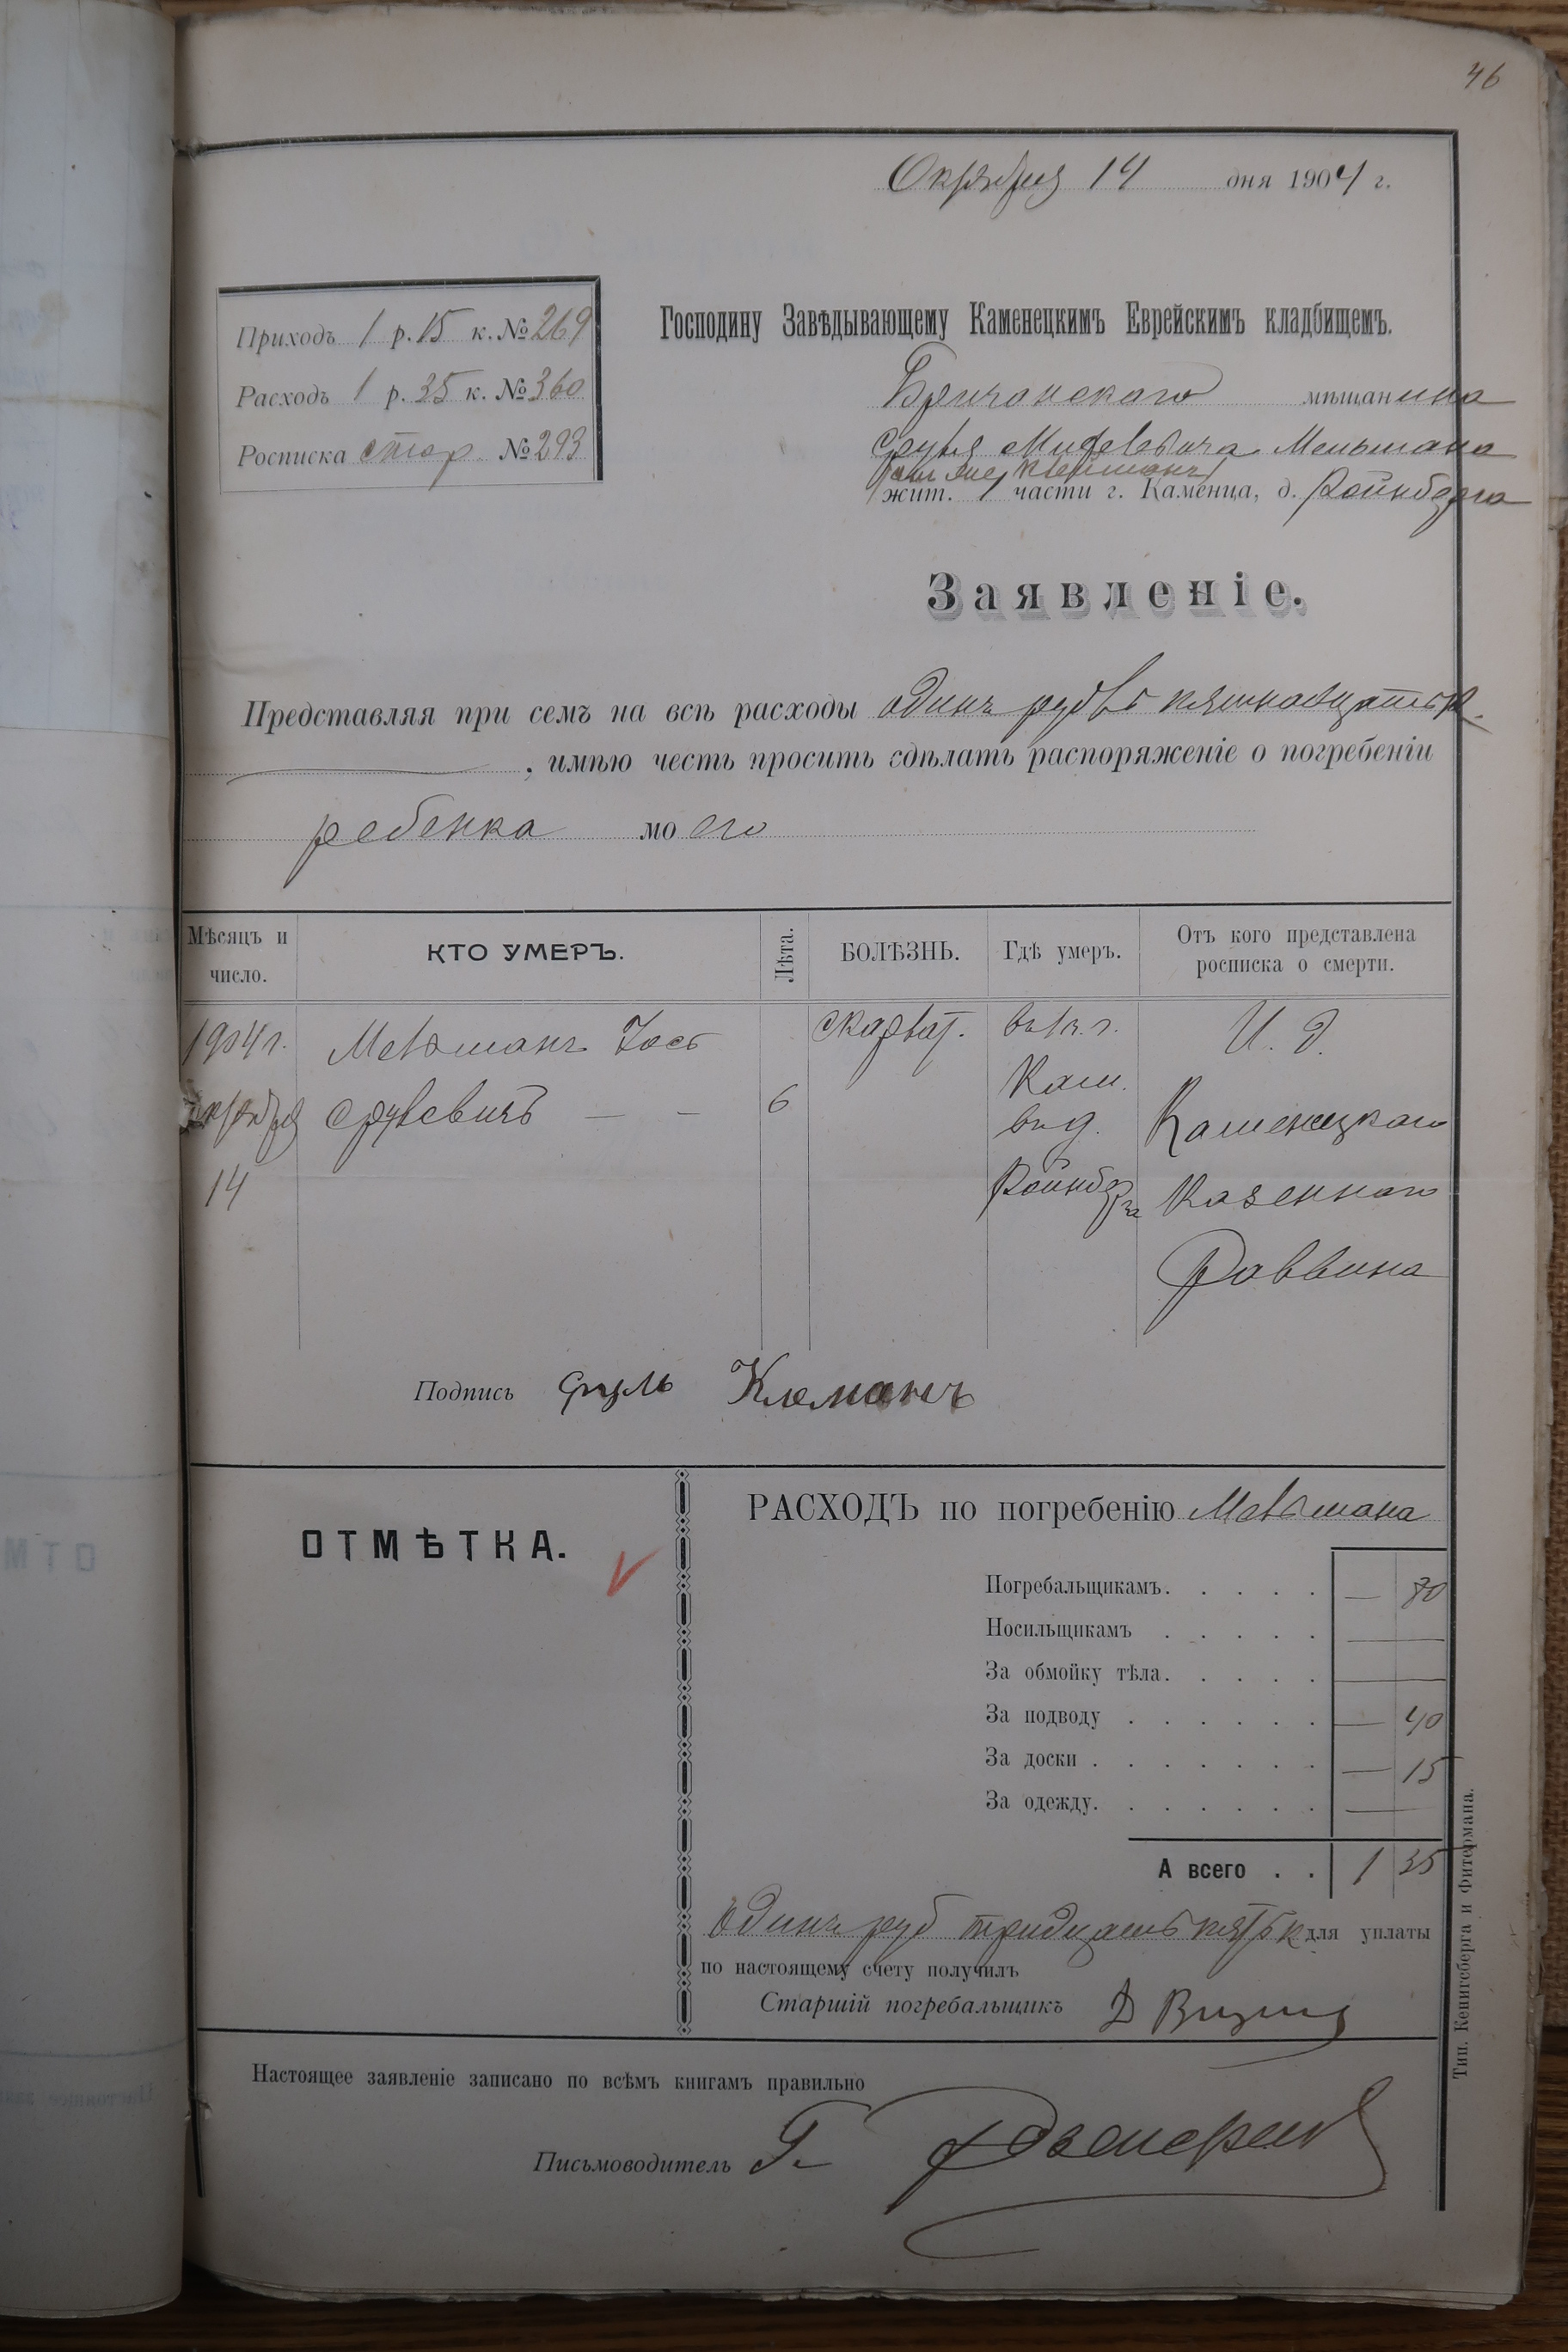 46
Октября 14 дня 1904 г.
Приходъ 1 р. 15 к. № 269
Расходъ 1 р. 35 к. № 360
Росписка стар. № 293
Господину Завѣдывающему Каменецкимъ Еврейскимъ кладбищемъ.
Бричанскаго мѣщанина
Сруля
жит. 1 части г. Каменца, д. Ройнберга
Заявленіе.
Представляя при семъ на всѣ расходы одинъ рубль пятнадцать к.
, имѣю честь просить сдѣлать распоряженіе о погребеніи
ребенка моего
Мѣсяцъ и число.
КТО УМЕРЪ.
Лѣта.
БОЛѢЗНЬ.
Гдѣ умеръ.
Отъ кого представлена росписка о смерти.
1904 г. Скарлат. въ г. И. д.
Кам.
октября Срулевичъ — — 6 въ д. Каменецкаго
14 Ройнберга Казеннаго
Раввина
Подпись Сруль Клеманъ
ОТМѢТКА.
РАСХОДЪ по погребенію
Погребальщикамъ. . . . . — 80
Носильщикамъ . . . . . —
За обмойку тѣла. . . . . —
За подводу . . . . . . — 40
За доски . . . . . . . — 15
За одежду. . . . . . . —
А всего . . 1 35
Одинъ руб тридцать пять к для уплаты
по настоящему счету получилъ
Старшій погребальщикъ Д
Настоящее заявленіе записано по всѣмъ книгамъ правильно
Письмоводитель Г.
Тип. Кенигсберга и Фитермана.